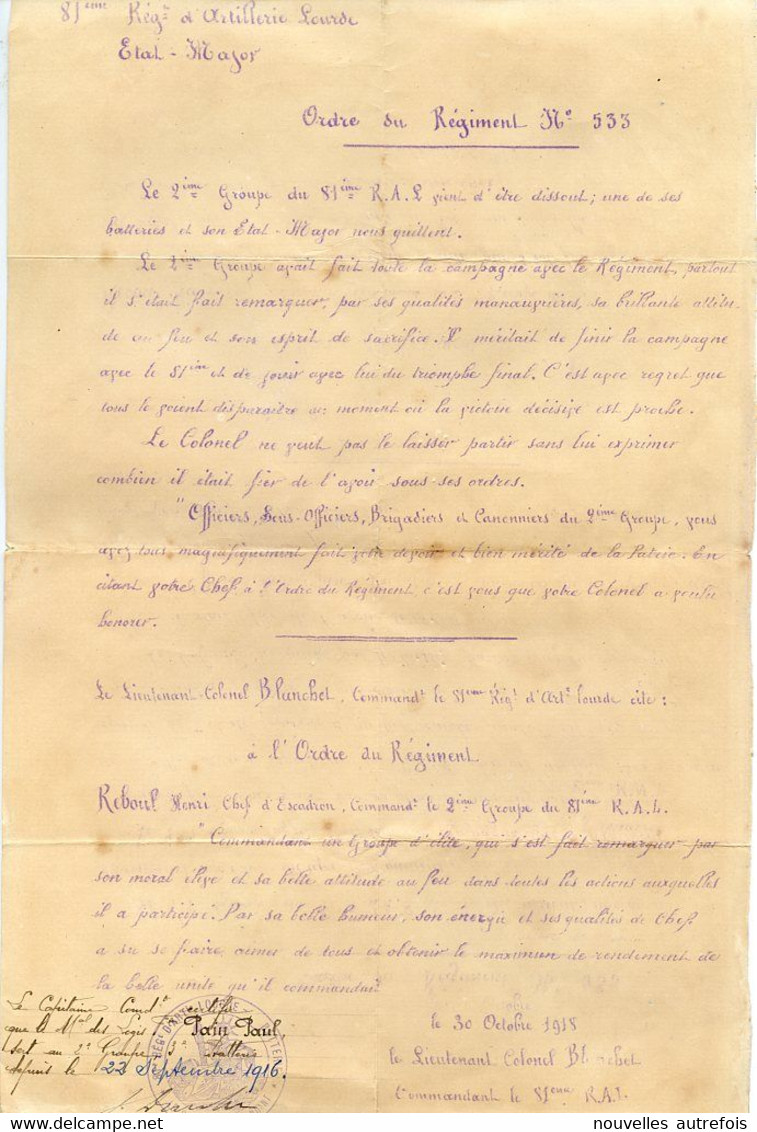 81ème Régt d'Artillerie Lourde
Etat-Major
Ordre du Régiment No 533
Le 2ième Groupe du 81ième R.A.L vient d'être dissout; une de ses
batteries et son Etat-Major nous quittent.
Le 2ième Groupe avait fait toute la campagne avec le Régiment, partout
il s'était fait remarquer, par ses qualités manœuvrières, sa brillante attitu-
de au feu et son esprit de sacrifice. Il méritait de finir la campagne
avec le 81ième et de jouir avec lui du triomphe final. C'est avec regret que
tous le voient disparaitre au moment où la victoire décisive est proche.
Le Colonel ne veut pas le laisser partir sans lui exprimer
combien il était fier de l'avoir sous ses ordres.
"Officiers, Sous-Officiers, Brigadiers et Canonniers du 2ième Groupe, vous
avez tous magnifiquement fait votre devoir et bien mérité de la Patrie. En
citant votre Chef à l'Ordre du Régiment c'est vous que votre Colonel a voulu
honorer.
Le Lieutenant-Colonel Blanchet, Commandt le 81ème Régt d'Arte lourde cite:
à l'Ordre du Régiment
Reboul Henri Chef d'Escadron, Commandt le 2ième Groupe du 81ième R.A.L.
"Commandant un Groupe d'élite, qui s'est fait remarquer par
son moral élevé et sa belle attitude au feu dans toutes les actions auxquelles
il a participé. Par sa belle humeur, son énergie et ses qualités de Chef
a su se faire aimer de tous et obtenir le maximum de rendement de
la belle unité qu'il commandait
le 30 Octobre 1918
le Lieutenant Colonel Blanchet
Commandant le 81ème R.A.L.
Le Capitaine Comdt certifie
que le Mal des Logis Pain Paul
sert au 2e Groupe 3e Batterie
depuis le 22 Septembre 1916.
nouvelles autrefois